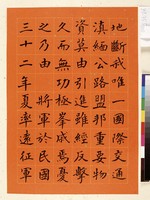 地斷我唯一國際交通
滇緬公路盟邦重要物
資莫由引進雖經反擊
久而無功極峯咸焉憂
之乃由　將軍於民國
三十二年夏率遠征軍